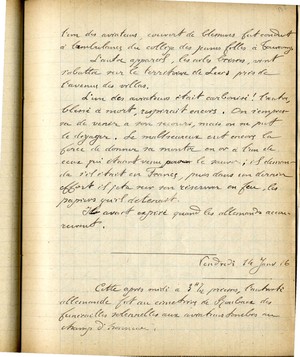 l'un des aviateurs, couvert de blessures fut conduit
à l'ambulance du collège des jeunes filles à Tourcoing.
L'autre appareil, les ailes brisées, vint
s'abattre sur le territoire de près de
l'avenue des villas.
L'un des aviateurs était carbonisé ! l'autre,
blessé à mort, respirait encore. On s'empressa
de venir à son secours, mais on ne put
le dégager. Le malheureux eut encore la
force de donner sa montre en or à l'un de
ceux qui étaient venus le sauver ; il demanda
s'il était en France, puis dans un dernier
effort il jeta sur son réservoir en feu, les
papiers qu'il détenait.
Il avait expiré quand les allemands accoururent.
Vendredi 14 16
Cette après midi à 3h précises, l'autorité
allemande fut au cimetière de
funérailles solennelles aux aviateurs tombés au
champ d'honneur.